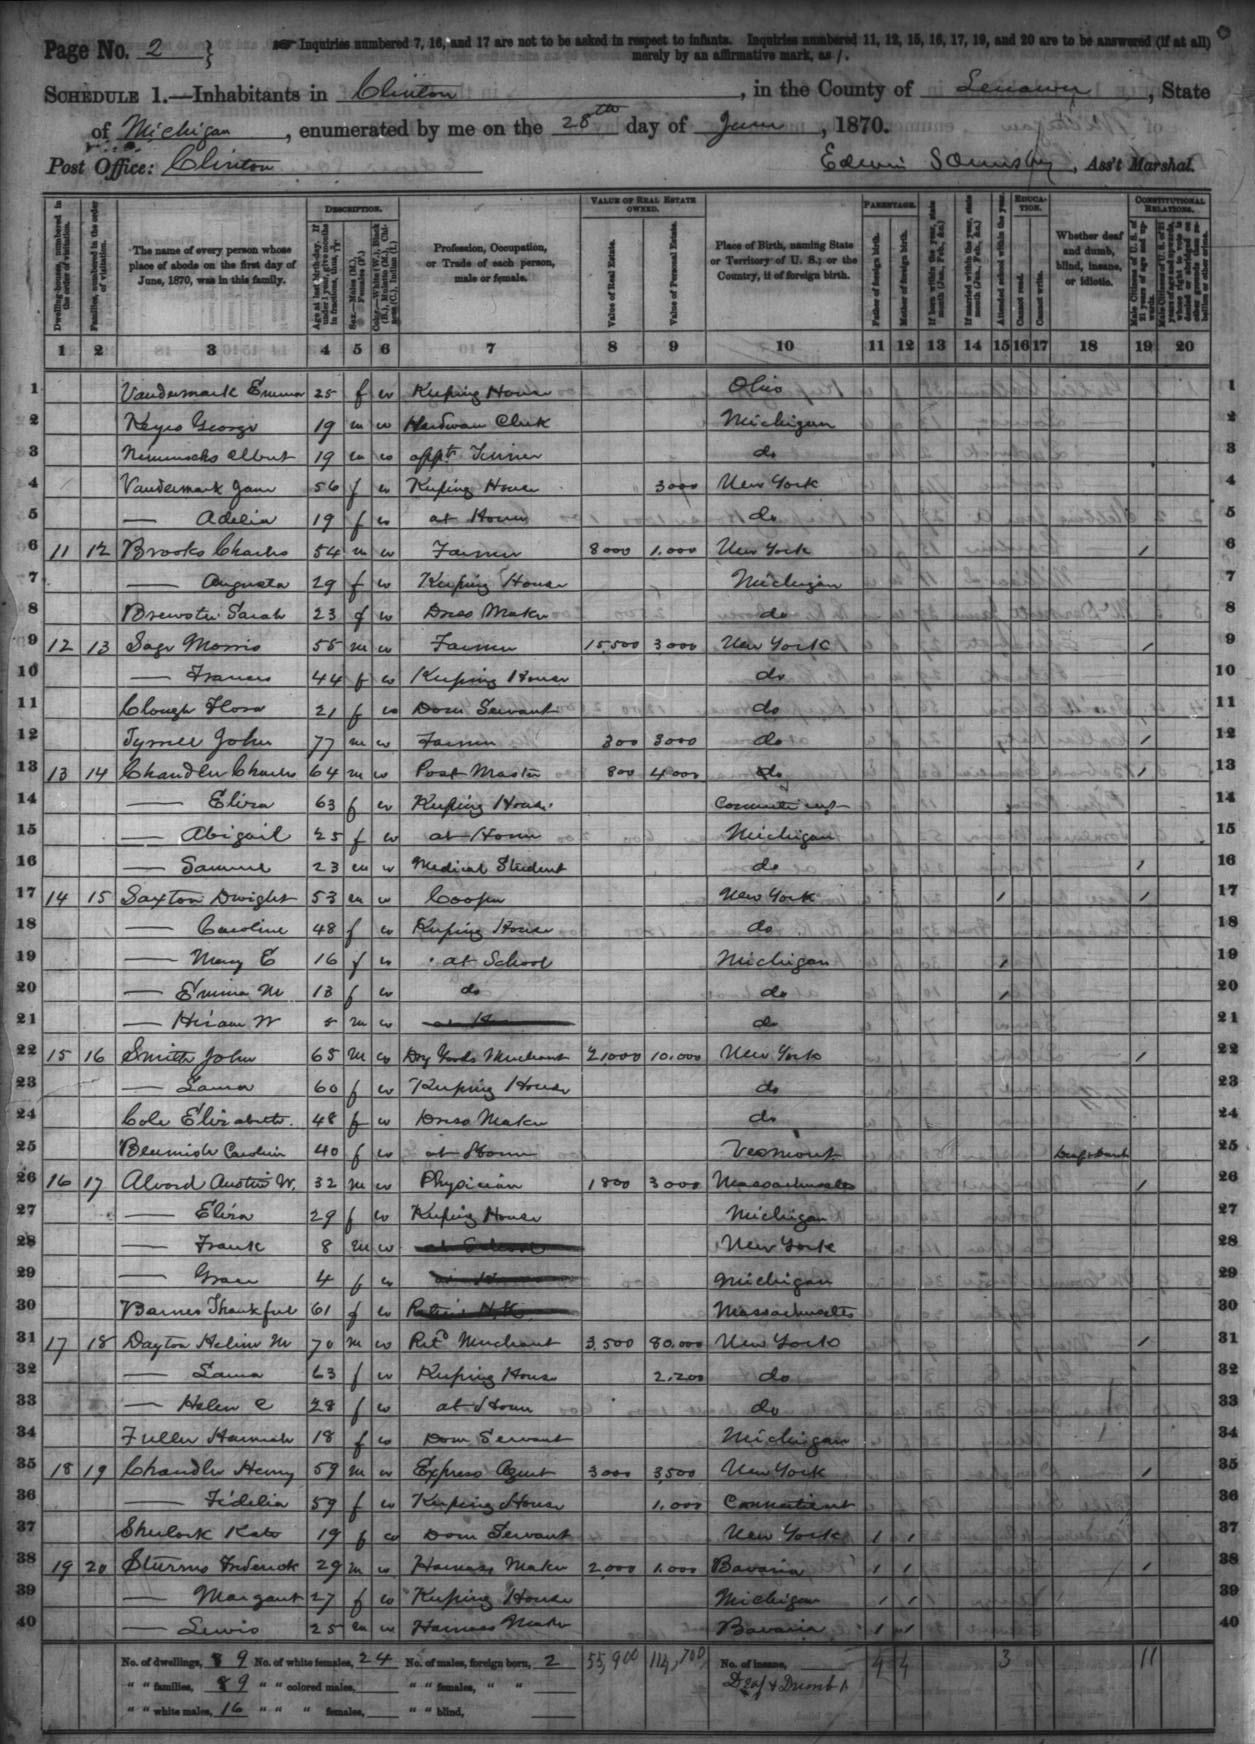 Page No. 2 } Inquiries numbered 7, 16, and 17 are not to be asked in respect to infants. Inquiries numbered 11, 12, 15, 16, 17, 19, and 20 are to be answered (if at all)
merely by an affirmative mark, as /.
SCHEDULE 1.—Inhabitants in Clinton, in the County of Lenawee, State
of Michigan, enumerated by me on the 28th day of June, 1870.
Post Office: Clinton Edwin, Ass't Marshal.
DESCRIPTION. VALUE OF REAL ESTATE OWNED. PARENTAGE. EDUCATION. CONSTITUTIONAL RELATIONS.
Dwelling-houses, numbered in the order of visitation. Families, numbered in the order of visitation. The name of every person whose place of abode on the first day of June, 1870, was in this family. Profession, Occupation, or Trade of each person, male or female. Value of Real Estate. Value of Personal Estate. Place of Birth, naming State or Territory of U. S.; or the Country, if of foreign birth. Father of foreign birth. Mother of foreign birth. If born within the year, state month (Jan., Feb., &c.) If married within the year, state month (Jan., Feb., &c.) Attended school within the year. Cannot read. Cannot write. Whether deaf and dumb, blind, insane, or idiotic.
1 2 3 4 5 6 7 8 9 10 11 12 13 14 15 16 17 18 19 20
1 Vandermark Emma 25 f w Keeping House Ohio 1
2 Keyes George 19 m w Hardware Clerk Michigan 2
3 Albert 19 m w appt Tinner do 3
4 Vandermark Jane 56 f w Keeping House 3000 New York 4
5 — Adelia 19 f w at Home do 5
6 11 12 Brooks Charles 54 m w Farmer 8000 1,000 New York / 6
7 — Augusta 29 f w Keeping House Michigan 7
8 Brewster Sarah 23 f w Dress Maker do 8
9 12 13 Sage Morris 55 m w Farmer 15,500 3,000 New York / 9
10 — Frances 44 f w Keeping House do 10
11 Clough Flora 21 f w Dom Servant do 11
12 John 77 m w Farmer 300 3000 do / 12
13 13 14 Chandler Charles 64 m w Post Master 800 4,000 do / 13
14 — Eliza 63 f w Keeping House Connecticut 14
15 — Abigail 25 f w at Home Michigan 15
16 — Samuel 23 m w Medical Student do / 16
17 14 15 Saxton Dwight 53 m w Cooper New York / / 17
18 — Caroline 48 f w Keeping House do 18
19 — Mary E 16 f w at School Michigan / 19
20 — Emma M 13 f w do do / 20
21 — Hiram W 5 m w do 21
22 15 16 Smith John 65 m w Dry Goods Merchant 21000 10,000 New York / 22
23 — Laura 60 f w Keeping House do 23
24 Cole Elizabeth 48 f w Dress Maker do 24
25 Caroline 40 f w at Home Vermont Deaf & Dumb 25
26 16 17 Alvord Austin W. 32 m w Physician 1800 3000 Massachusetts / 26
27 — Eliza 29 f w Keeping House Michigan 27
28 — Frank 8 m w at School New York 28
29 — Grace 4 f w at Home Michigan 29
30 Barnes Thankful 61 f w Massachusetts 30
31 17 18 Dayton M 70 m w Retd Merchant 3,500 80,000 New York / 31
32 — Laura 63 f w Keeping House 2,200 do 32
33 — Helen C 28 f w at Home do 33
34 Fuller Hannah 18 f w Dom Servant Michigan 34
35 18 19 Chandler Henry 59 m w Express Agent 3000 3,500 New York / 35
36 — Fidelia 59 f w Keeping House 1,000 Connecticut 36
37 Sherlock Kate 19 f w Dom Servant New York / / 37
38 19 20 Frederick 29 m w Harness Maker 2,000 1,000 Bavaria / / / 38
39 — Margaret 27 f w Keeping House Michigan / / 39
40 — Lewis 25 m w Harness Maker Bavaria / / 40
No. of dwellings, 9 No. of white females, 24 No. of males, foreign born, 2 55,900 114,700 No. of insane, 4 4 3 11
" " families, 9 " " colored males, " " females, " " Deaf & Dumb 1
" " white males, 16 " " " females, " " blind,